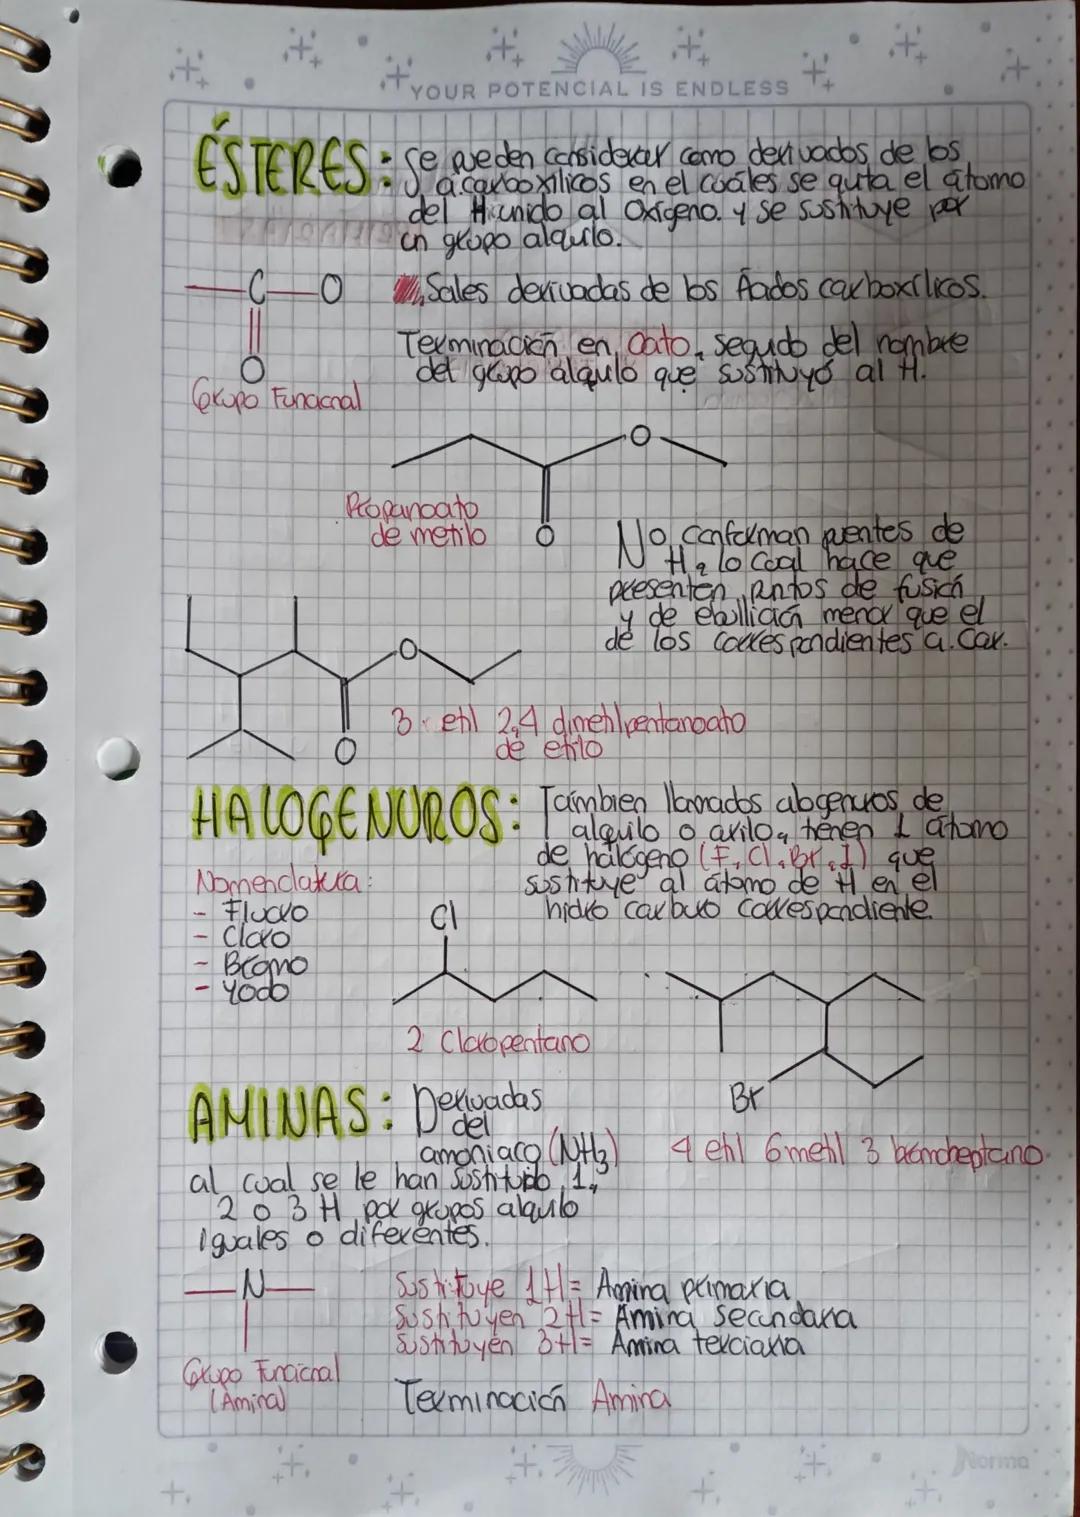 YOUR POTENCIAL IS ENDLESS
ÉSTERES: Se pueden considerar como derivados de los
a.carboxílicos en el cuáles se quita el átomo
del H unido al Oxígeno. y se sustituye por
un grupo alquilo.
C O
Sales derivadas de los Ácidos carboxílicos.
O
Terminación en, oato, seguido del nombre
del grupo alquilo que sustituyó al H.
Grupo Funcional
O
Propanoato
de metilo
O
No conforman puentes de
H, lo cual hace que
presenten puntos de fusión
y de ebullición menor que el
de los correspondientes a. Car.
O
3 etil 2,4 dimetilpentanoato
de etilo
O
HALOGENUROS: También llamados alogenuros de
alquilo o arilo, tienen 1 átomo
de halógeno (F, Cl, Br, I) que
sustituye al átomo de H en el
hidro carburo correspondiente.
Nomenclatura:
- Fluoro
- Cloro
- Bromo
- Yodo
Cl
2 Cloropentano
Br
4 etil 6 metil 3 bromoheptano
AMINAS: Derivadas
del
amoniaco (NH3)
al cual se le han sustituido 1,
2 o 3 H por grupos alquilo
iguales o diferentes.
N
Grupo Funcional
(Amina)
Sustituye 1H = Amina primaria
Sustituyen 2H = Amina secundaria
Sustituyen 3H = Amina terciaria
Terminación Amina
Norma